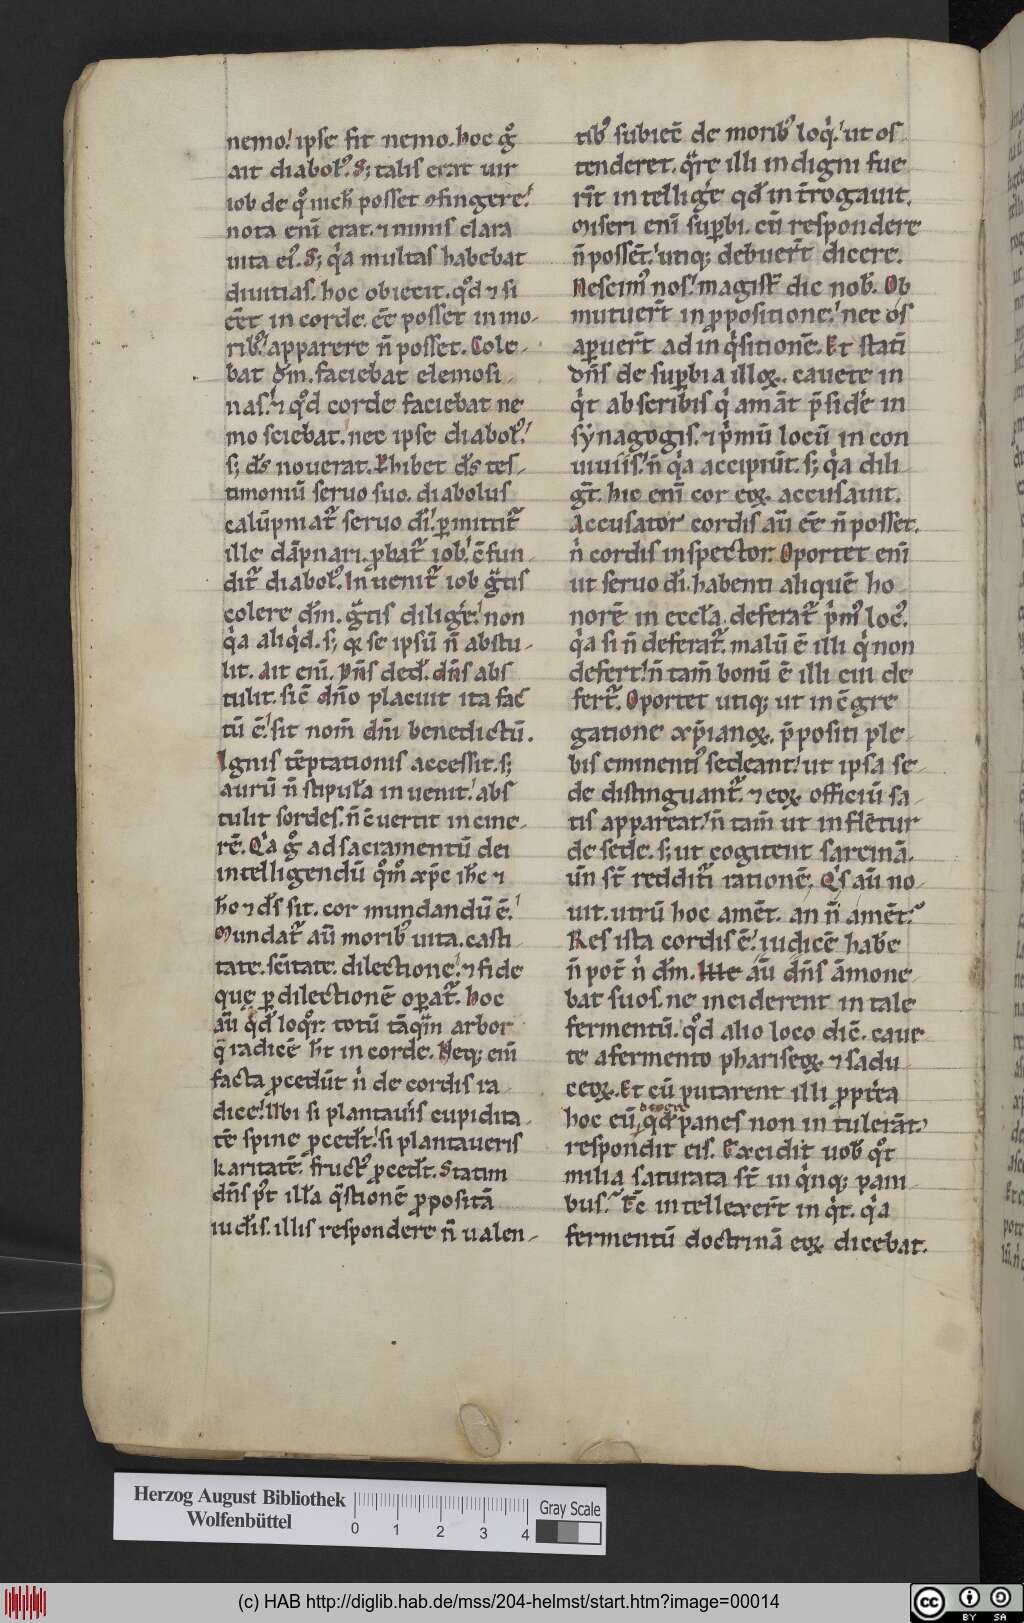 nemo. ipse fit nemo. hoc gͦ
ait diabolꝰ. S; talis erat uir
iob de qͦ nich̄ posset ꝯfingere.
nota enī erat. ⁊ nimis clara
uita eiꝰ. S; qͥa multas habebat
diuitias. hoc obiecit. qͦd ⁊ si
eēt in corde. eē posset in mo-
ribꝰ. apparere n̄ posset. Cole-
bat dm̄. faciebat elemosi-
nas. ⁊ qͦd corde faciebat ne
mo sciebat. nec ipse diabolꝰ.
s; ds̄ nouerat. Phibet ds̄ tes-
timoniū seruo suo. diabolus
calūpniatᷣ seruo dī. ꝑmittitᷣ
ille dāpnari. ꝓbatᷣ iob. ꝯ̄fun-
ditᷣ diabolꝰ. Inuenitᷣ iob gͣtis
colere dm̄. gͣtis diligēꝰ. non
qͥa aliqͥd. s; q̄ se ipsū n̄ abstu-
lit. Ait enī. Dn̄s ded̄. dn̄s abs
tulit. sic̄ dn̄o placuit ita fac̄
tū ē. sit nom̄ dn̄i benedictū.
Ignis tēptationis accessit. s;
aurū n̄ stipulā inuenit. abs
tulit sordes. n̄ ꝯ̄uertit in cine-
rē. Qͥa gͦ ad sacramentū dei
intelligendū qͦm̊ xp̄c ih̄c ⁊
hō ⁊ ds̄ sit. cor mundandū ē.
Mundatᷣ aū moribꝰ uita. casti-
tate. sc̄itate. dilectione. ⁊ fide
quę ꝑ dilectionē oꝑatᷣ. Hoc
aū qͦd loqͦr. totū tāqͣm arbor
q̄ radicē ht̄ in corde. Neq; enī
facta ꝓcedūt nͥ de cordis ra-
dice. Ubi si plantauͥs cupidita-
tē spine ꝓcedt̄. si plantaueris
karitatē. fructꝰ ꝓcedt̄. Statim
dn̄s pͦt illā qͥstionē ꝓpositā
iudīs. illis respondere n̄ ualen-
tibꝰ subiec̄ de moribꝰ loqͥ. ut os-
tenderet. qͣre illi indigni fue-
rūt intelligͤe qd̄ int̄rogauit.
Miseri enī suꝑbi. cū respondere
n̄ possēt. utiq; debuert̄ dicere.
Nescimꝰ nos. magist̄ dic nob̄. Ob
mutuert̄ in ꝓpositione. nec os
aꝑuert̄ ad inqͥsitionē. Et statī
dn̄s de suꝑbia illoꝝ. cauete in
qͥt ab scribis qͥ amāt p̄sidͤe in
synagogis. ⁊ pͥmū locū in con
uiuiis. n̄ qͥa accipiūt. s; qͥa dili-
gt̄. hic enī cor eoꝝ accusauit.
Accusator cordis aū eē n̄ posset.
nͥ cordis inspector. Oportet enī
ut seruo dī. habenti aliquē ho
norē in eccl̄a. deferatᷣ pͥmꝰ locꝰ.
qͥa si n̄ deferatᷣ. malū ē illi qͥ non
defert. n̄ tam̄ bonū ē illi cui de-
fertᷣ. Oportet utiq; ut in ꝯ̄gre
gatione xp̄ianoꝝ. p̄positi ple-
bis eminentiꝰ sedeant. ut ipsa se-
de distinguantᷣ. ⁊ eoꝝ officiū sa-
tis appareat. n̄ tam̄ ut inflētur
de sede. s; ut cogitent sarcinā.
un̄ st̄ redditͥ rationē. Qͥs aū no-
uit. utrū hoc amēt. an n̄ amēt.
Res ista cordis ē. iudicē habe
n̄ pot̄ nͥ dm̄. Ille aū dn̄s āmone
bat suos. ne inciderent in tale
fermentū. qͦd alio loco dic̄. caue
te a fermento phariseoꝝ. ⁊ sadu
ceoꝝ. Et cū putarent illi ꝓptͤea
hoc eū dicere qd̄ panes non in tulerāt.
respondit eis. Excidit uob̄ qͦt
milia saturata st̄ in qͥnq; pani
bus. Tc̄ intellexert̄ inqͥt. qͥa
fermentū doctrinā eoꝝ dicebat.
Herzog August Bibliothek
Wolfenbüttel
0 1 2 3 4
Gray Scale
(c) HAB http://diglib.hab.de/mss/204-helmst/start.htm?image=00014
cc BY SA